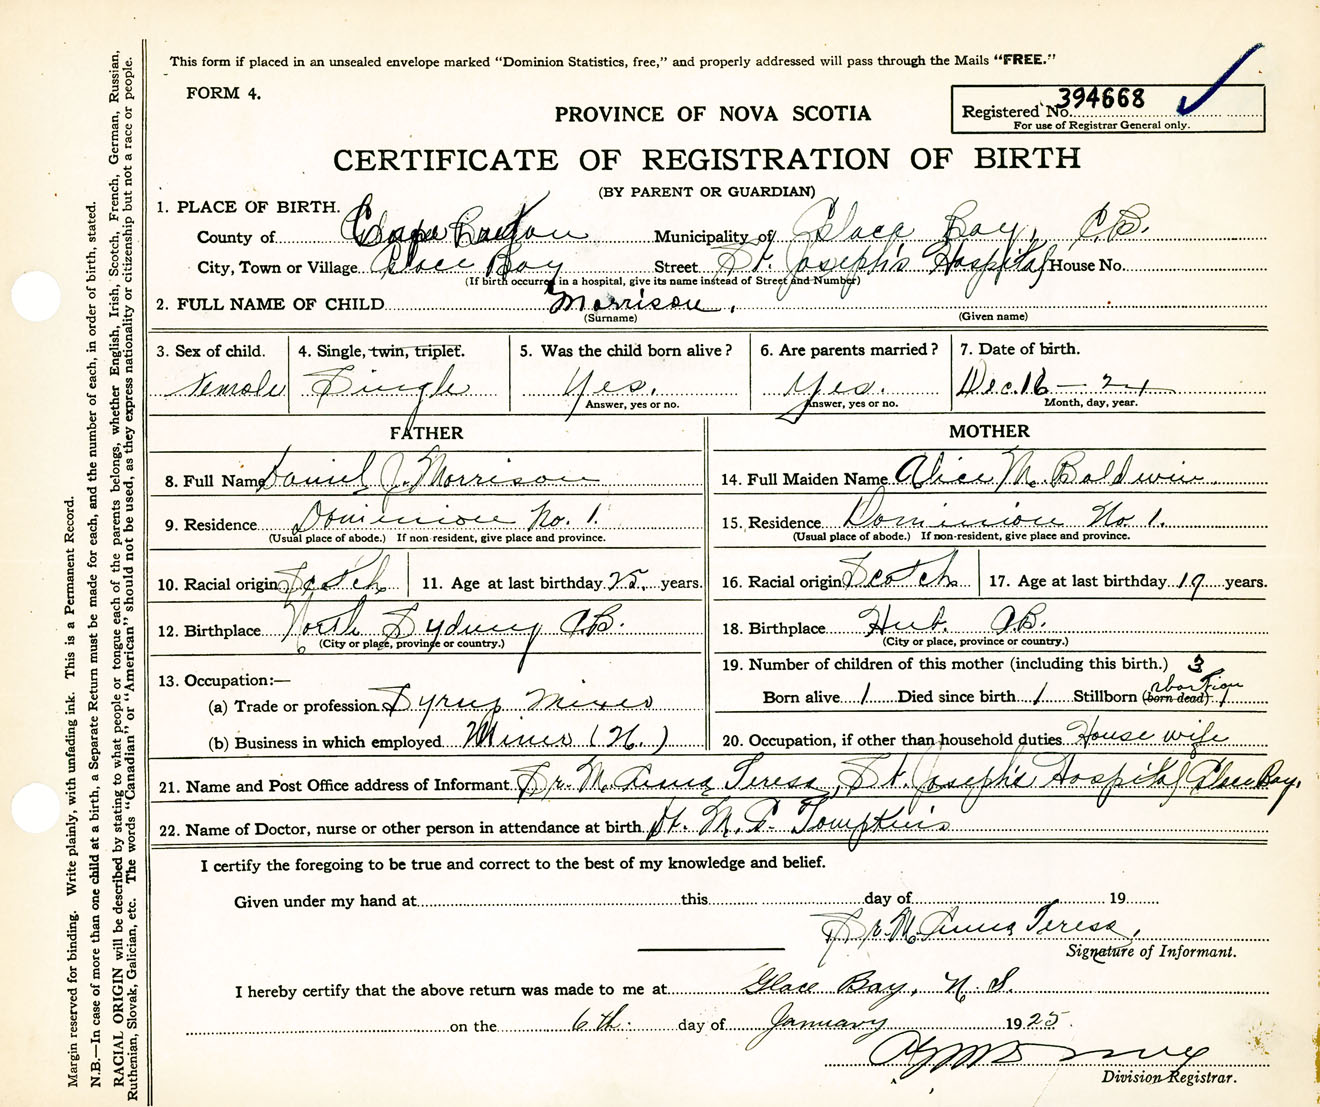 This form if placed in an unsealed envelope marked "Dominion Statistics, free," and properly addressed will pass through the Mails "FREE."
FORM 4.
Registered No. 394668
For use of Registrar General only.
PROVINCE OF NOVA SCOTIA
CERTIFICATE OF REGISTRATION OF BIRTH
(BY PARENT OR GUARDIAN)
1. PLACE OF BIRTH.
County of Cape Breton Municipality of Glace Bay, C.B.
City, Town or Village Glace Bay Street St. Joseph's Hospital House No.
(If birth occurred in a hospital, give its name instead of Street and Number)
2. FULL NAME OF CHILD Morrison,
(Surname) (Given name)
3. Sex of child. 4. Single, twin, triplet. 5. Was the child born alive? 6. Are parents married? 7. Date of birth.
Female Single Yes. Yes. Dec. 16 - 24
Answer, yes or no. Answer, yes or no. Month, day, year.
FATHER MOTHER
8. Full Name Daniel J. Morrison 14. Full Maiden Name Alice M. Baldwin
9. Residence Dominion No. 1. 15. Residence Dominion No 1.
(Usual place of abode.) If non-resident, give place and province. (Usual place of abode.) If non-resident, give place and province.
10. Racial origin Scotch 11. Age at last birthday 25. years. 16. Racial origin Scotch 17. Age at last birthday 19 years.
12. Birthplace North Sydney C.B. 18. Birthplace Hub. C.B.
(City or place, province or country.) (City or place, province or country.)
19. Number of children of this mother (including this birth.) 3
13. Occupation:—
Born alive 1 Died since birth 1 Stillborn (born dead) abortion 1
(a) Trade or profession Syrup Mixer
(b) Business in which employed Miner (N.) 20. Occupation, if other than household duties House wife
21. Name and Post Office address of Informant Sr. M. Anna Teresa, St. Joseph's Hospital Glace Bay,
22. Name of Doctor, nurse or other person in attendance at birth Dr. M. C. Tompkins
I certify the foregoing to be true and correct to the best of my knowledge and belief.
Given under my hand at this day of 19
Sr. M. Anna Teresa,
Signature of Informant.
I hereby certify that the above return was made to me at Glace Bay, N.S.
on the 6th. day of January 1925.
Division Registrar.
Margin reserved for binding. Write plainly, with unfading ink. This is a Permanent Record.
N.B.—In case of more than one child at a birth, a Separate Return must be made for each, and the number of each, in order of birth, stated.
RACIAL ORIGIN will be described by stating to what people or tongue each of the parents belongs, whether English, Irish, Scotch, French, German, Russian,
Ruthenian, Slovak, Galician, etc. The words "Canadian" or "American" should not be used, as they express nationality or citizenship but not a race or people.